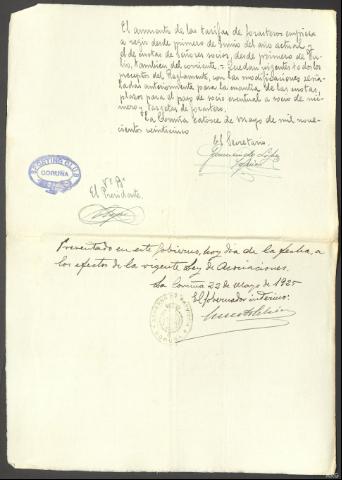 El aumento de las tarifas de forasteros empieza
a regir desde primero de Junio del año actual y
el de cuotas de señores socios, desde primero de Ju-
lio, tambien del corriente. - Quedan vigentes todos los
preceptos del Reglamento, con las modificaciones seña-
ladas anteriormente para la cuantía de las cuotas,
plazos para el paso de socio eventual a socio de nú-
mero y tarjetas de forastero.
La Coruña catorce de Mayo de mil nove-
cientos veinticinco
El Secretario
SPORTING CLUB
CORUÑA
Vº Bº
El Presidente
Presentado en este Gobierno, hoy dia de la fecha, a
los efectos de la vigente Ley de Asociaciones.
La Coruña 22 de Mayo de 1925
El Gobernador interino: